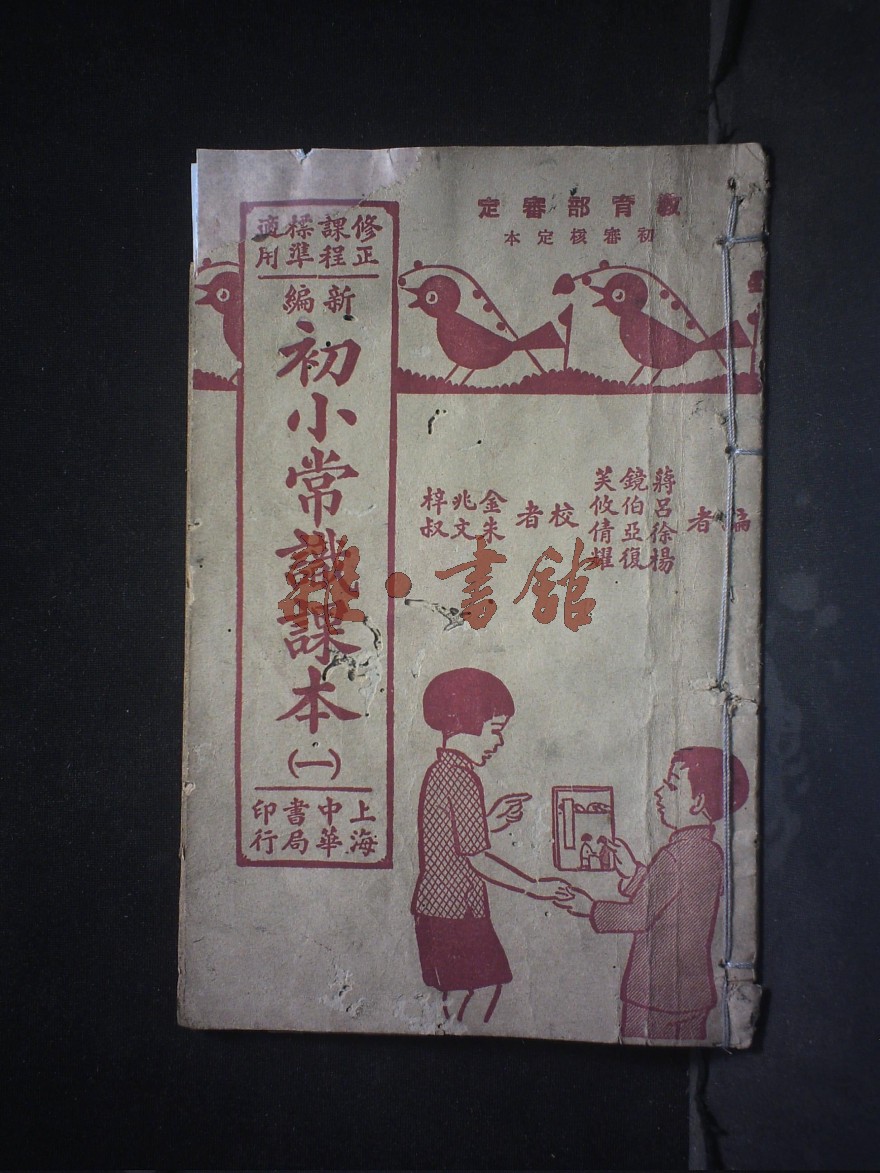 教育部審定
初審核定本
編者
蔣鏡芙
呂伯攸
徐亞倩
楊復耀
校者
金兆梓
朱文叔
修正課程標準適用
新編
初小常識課本
(一)
上海中華書局印行
雜·書館